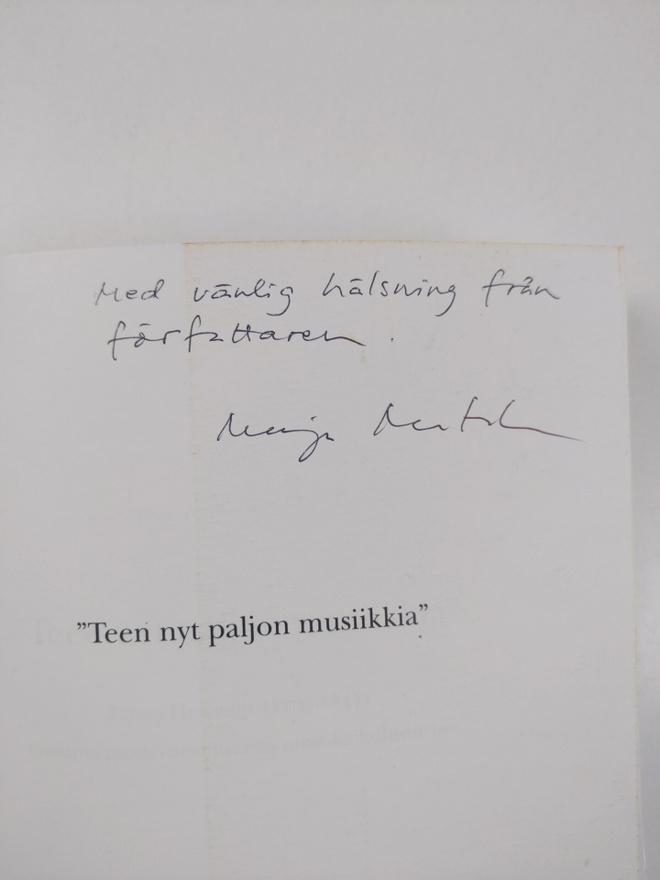 Med vänlig hälsning från
författaren.
"Teen nyt paljon musiikkia"